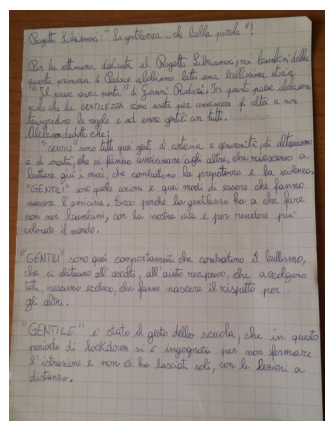 Progetto Libriamoci: "La gentilezza... che bella parola"!
Per la settimana dedicata al Progetto Libriamoci, noi bambini della
quarta primaria di Pedace abbiamo letto una bellissima storia
"Il paese senza punta" di Gianni Rodari. In questo paese abbiamo
visto che la GENTILEZZA viene usata per convincere gli altri a non
trasgredire le regole e ad essere gentili con tutti.
Abbiamo detto che:
"GENTILI" sono tutti quei gesti di cortesia e generosità, di altruismo
e di onestà, che ci fanno avvicinare agli altri, che riescono a
buttare giù i muri, che combattono la prepotenza e la violenza.
"GENTILI" sono quelle azioni e quei modi di essere che fanno
nascere l'amicizia. Ecco perché la gentilezza ha a che fare
con noi bambini, con la nostra vita e per rendere più
colorato il mondo.
"GENTILI" sono quei comportamenti che combattono il bullismo,
che ci abituano all'ascolto, all'aiuto reciproco, che accolgono
tutti, nessuno escluso, che fanno nascere il rispetto per
gli altri.
"GENTILE" è stato il gesto della scuola, che in questo
periodo di lockdown si è ingegnata per non fermare
l'istruzione e non ci ha lasciati soli, con le lezioni a
distanza.